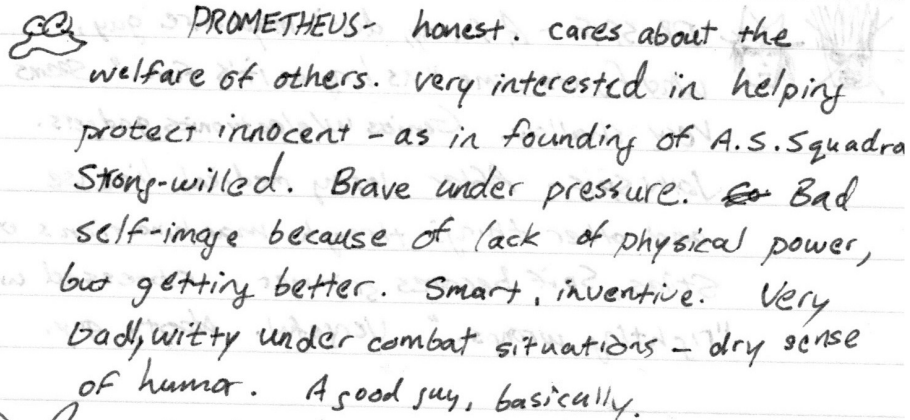 PROMETHEUS- honest. cares about the
welfare of others. very interested in helping
protect innocent - as in founding of A.S. Squadra
Strong-willed. Brave under pressure. Bad
self-image because of lack of physical power,
but getting better. Smart, inventive. Very
badly witty under combat situations - dry sense
of humor. A good guy, basically.